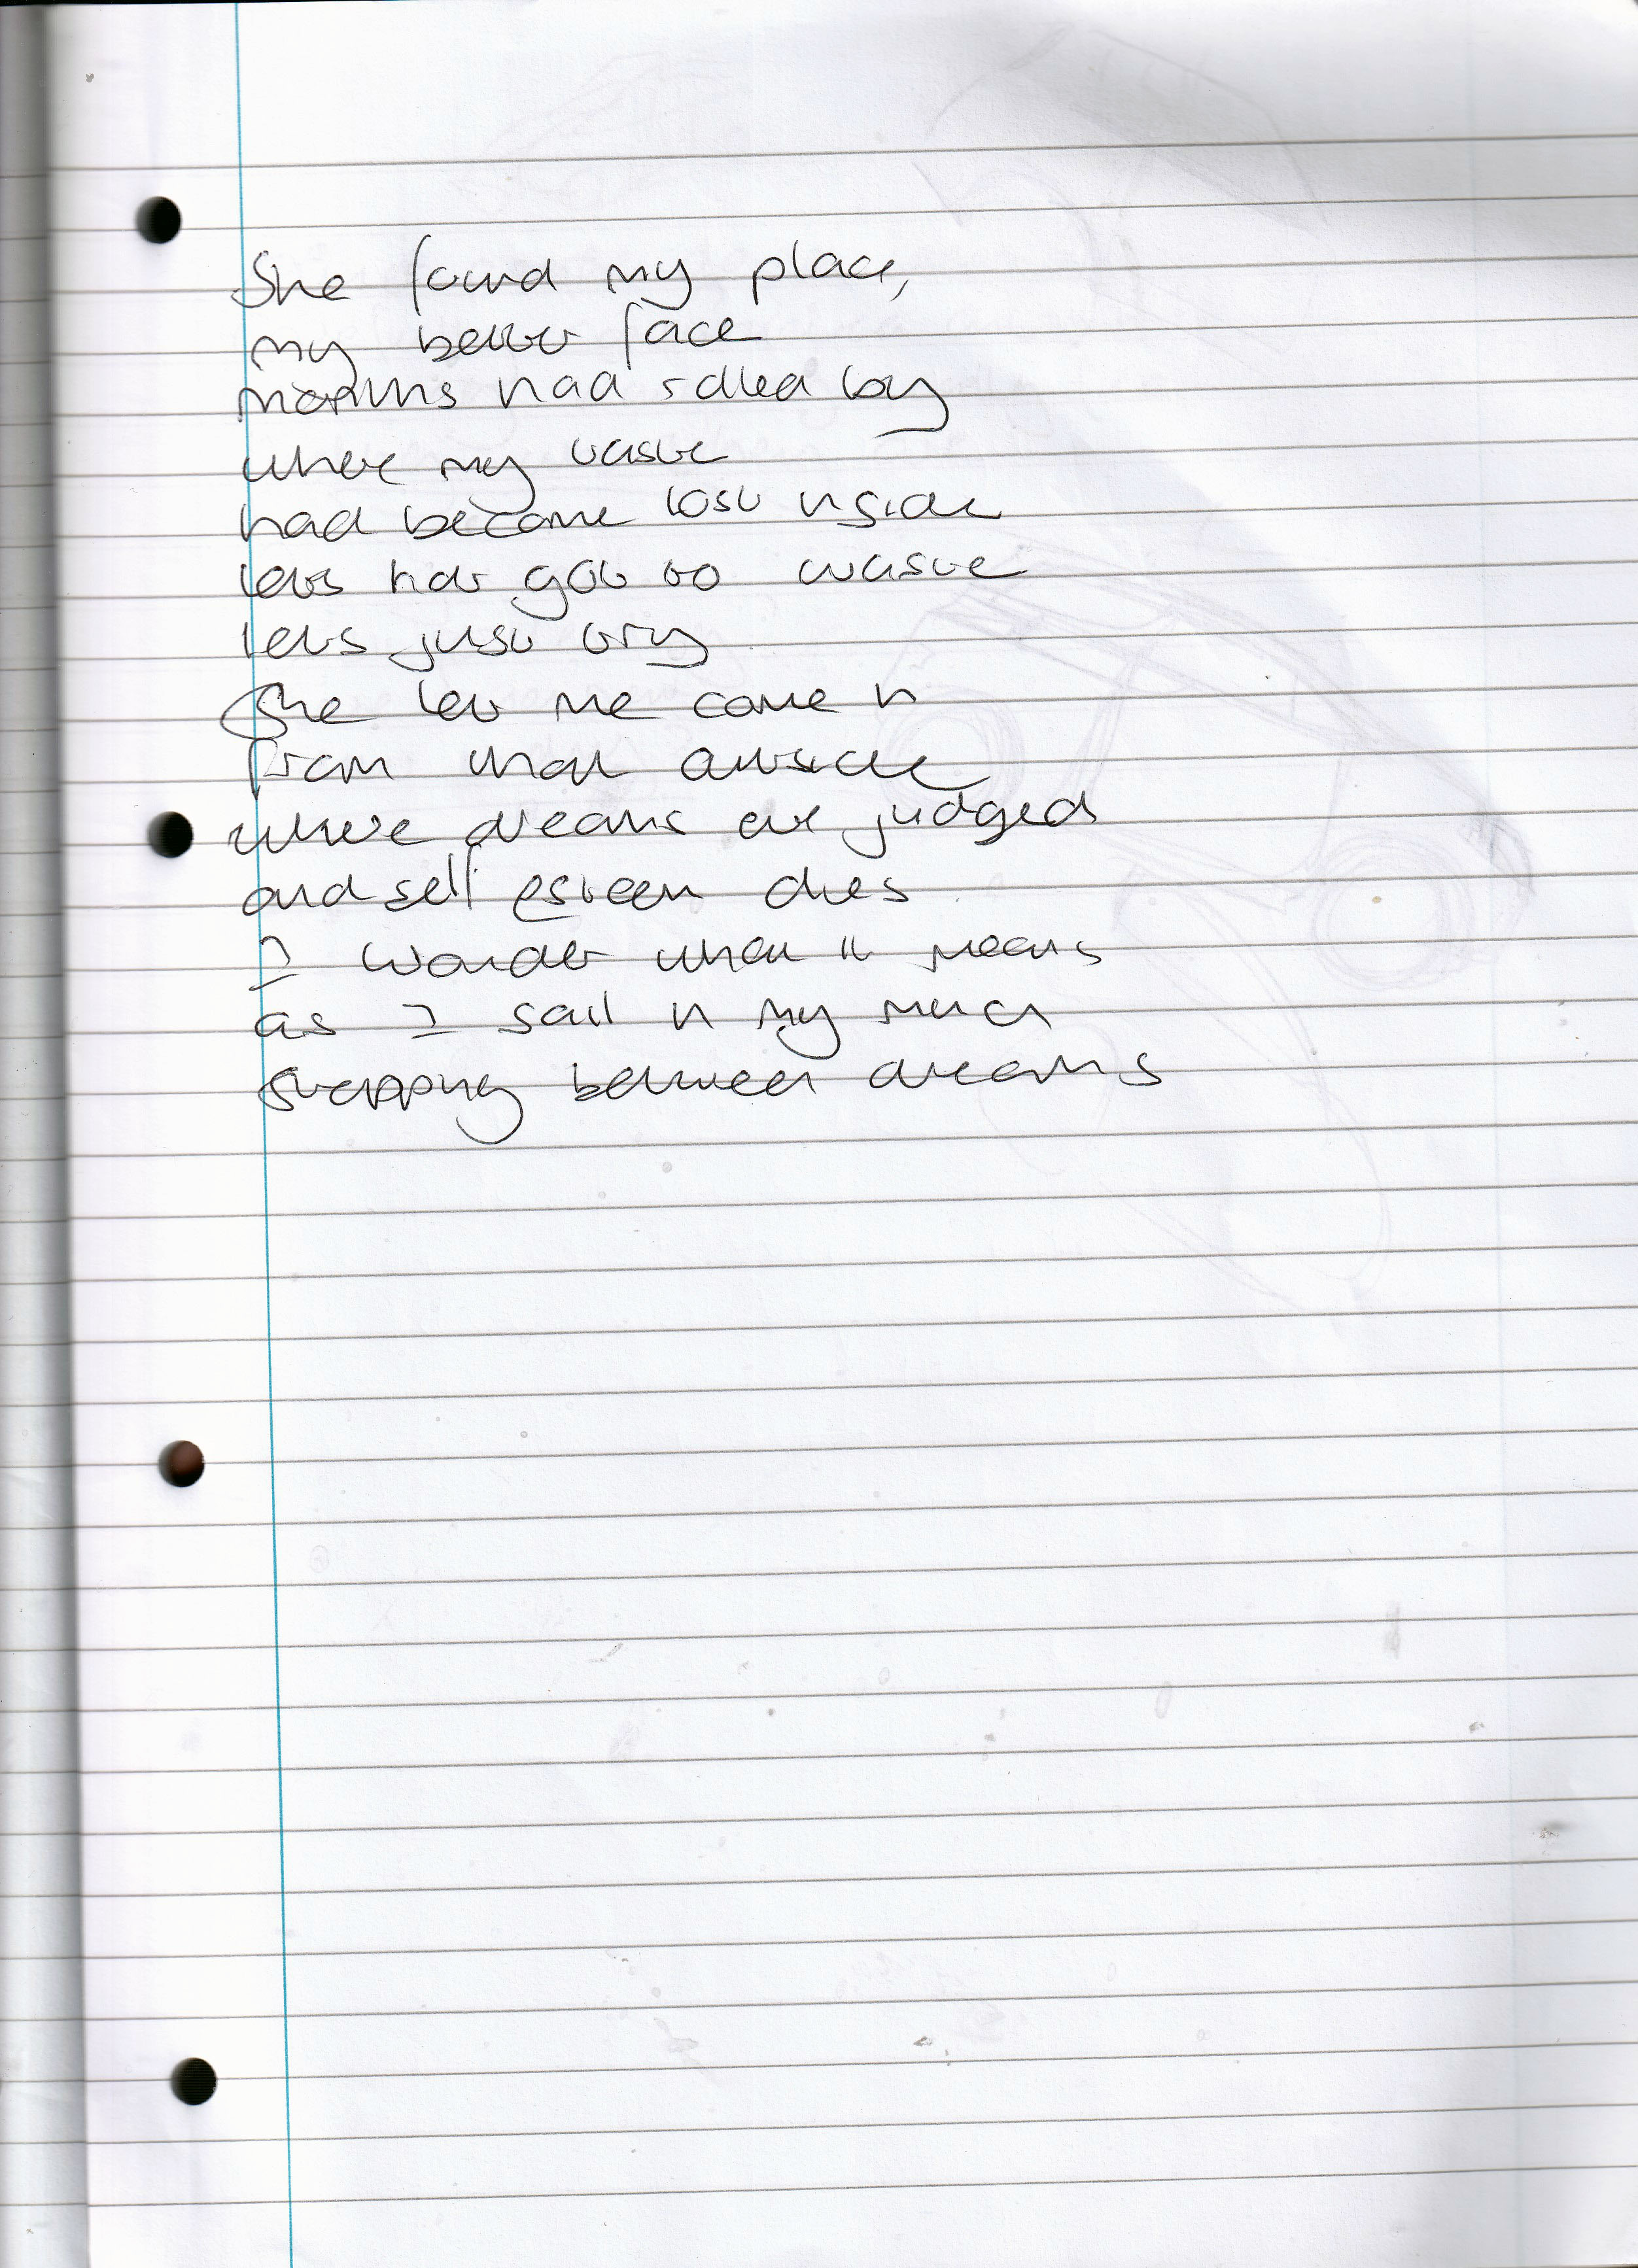 She found my place,
my better face
months had idled by
where my taste
had become lost inside
lets not got to waste
lets just try
She let me come in
from that outside
where dreams are judged
and self esteem dies
I wonder what it means
as I sail in my mind
stepping between dreams